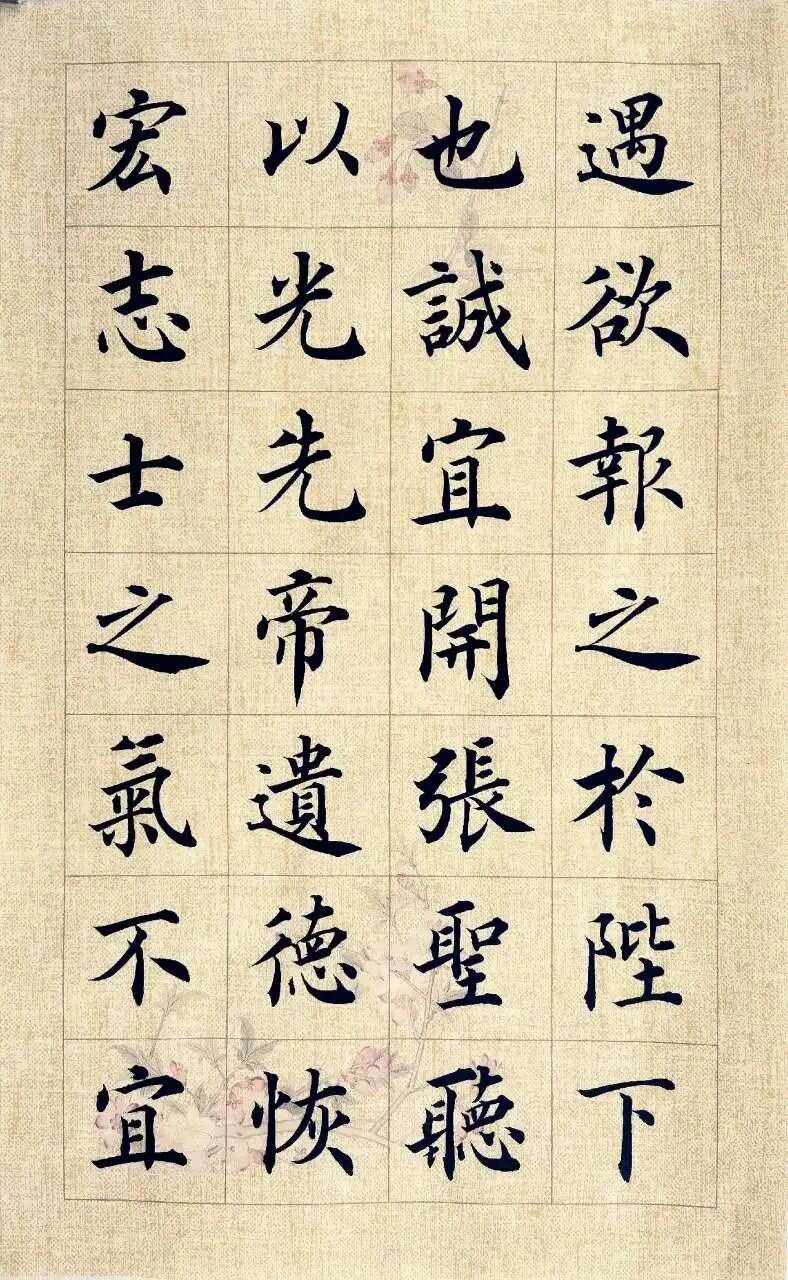 遇欲報之於陛下
也誠宜開張聖聽
以光先帝遺德恢
宏志士之氣不宜